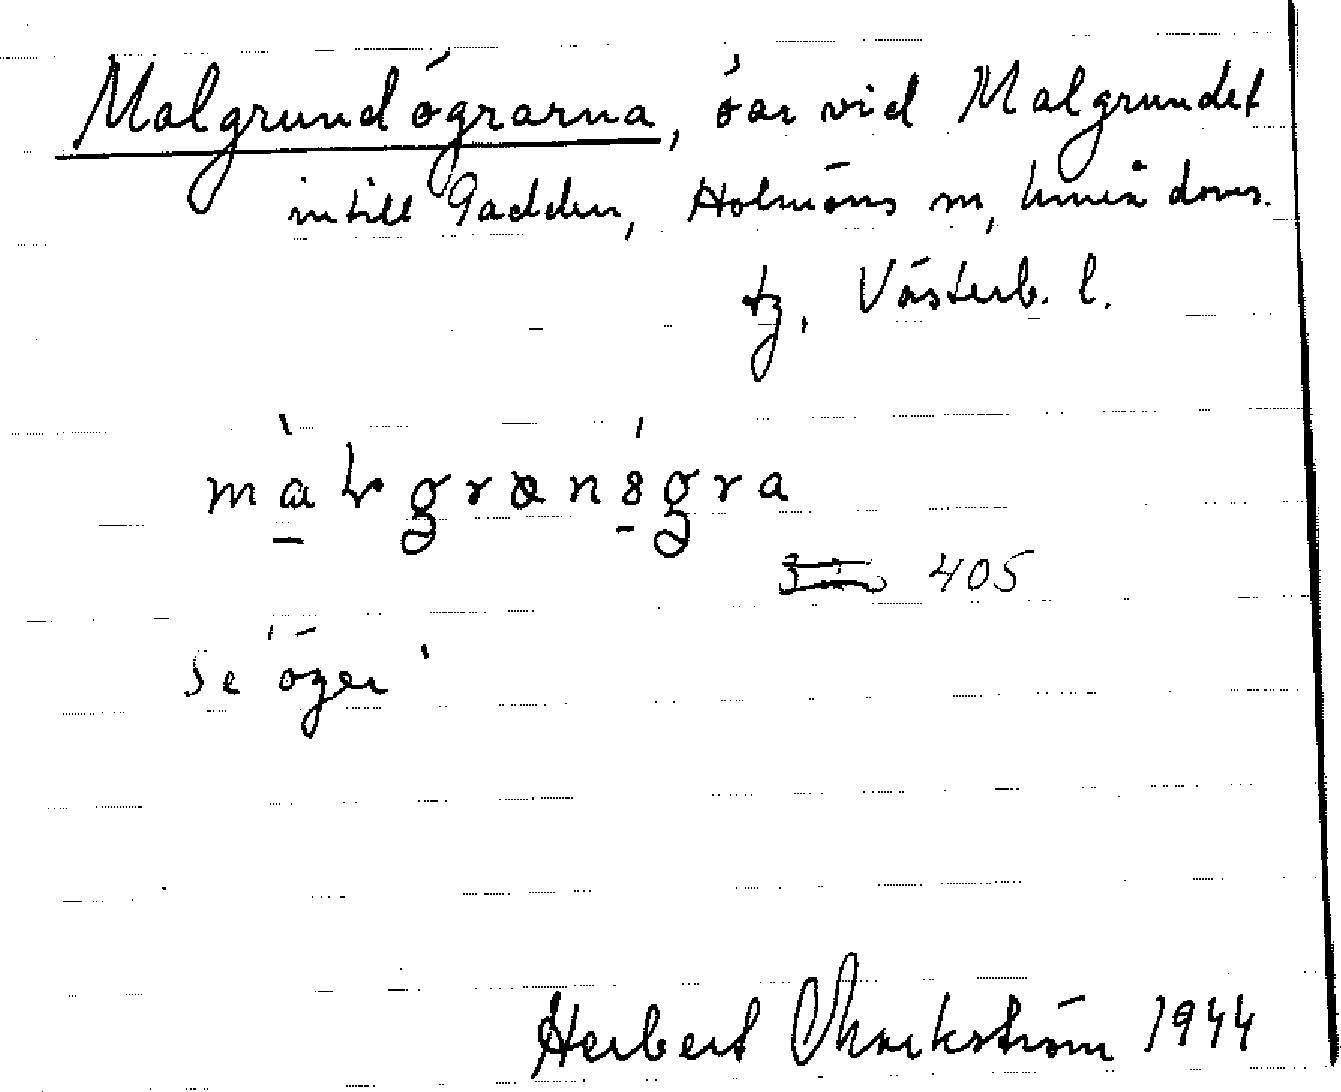 Malgrundögrarna, öar vid Malgrundet
intill Gadden, Holmöns sn, Umeå doms.
tg, Västerb. l.
405
se öger
Herbert Markström 1944